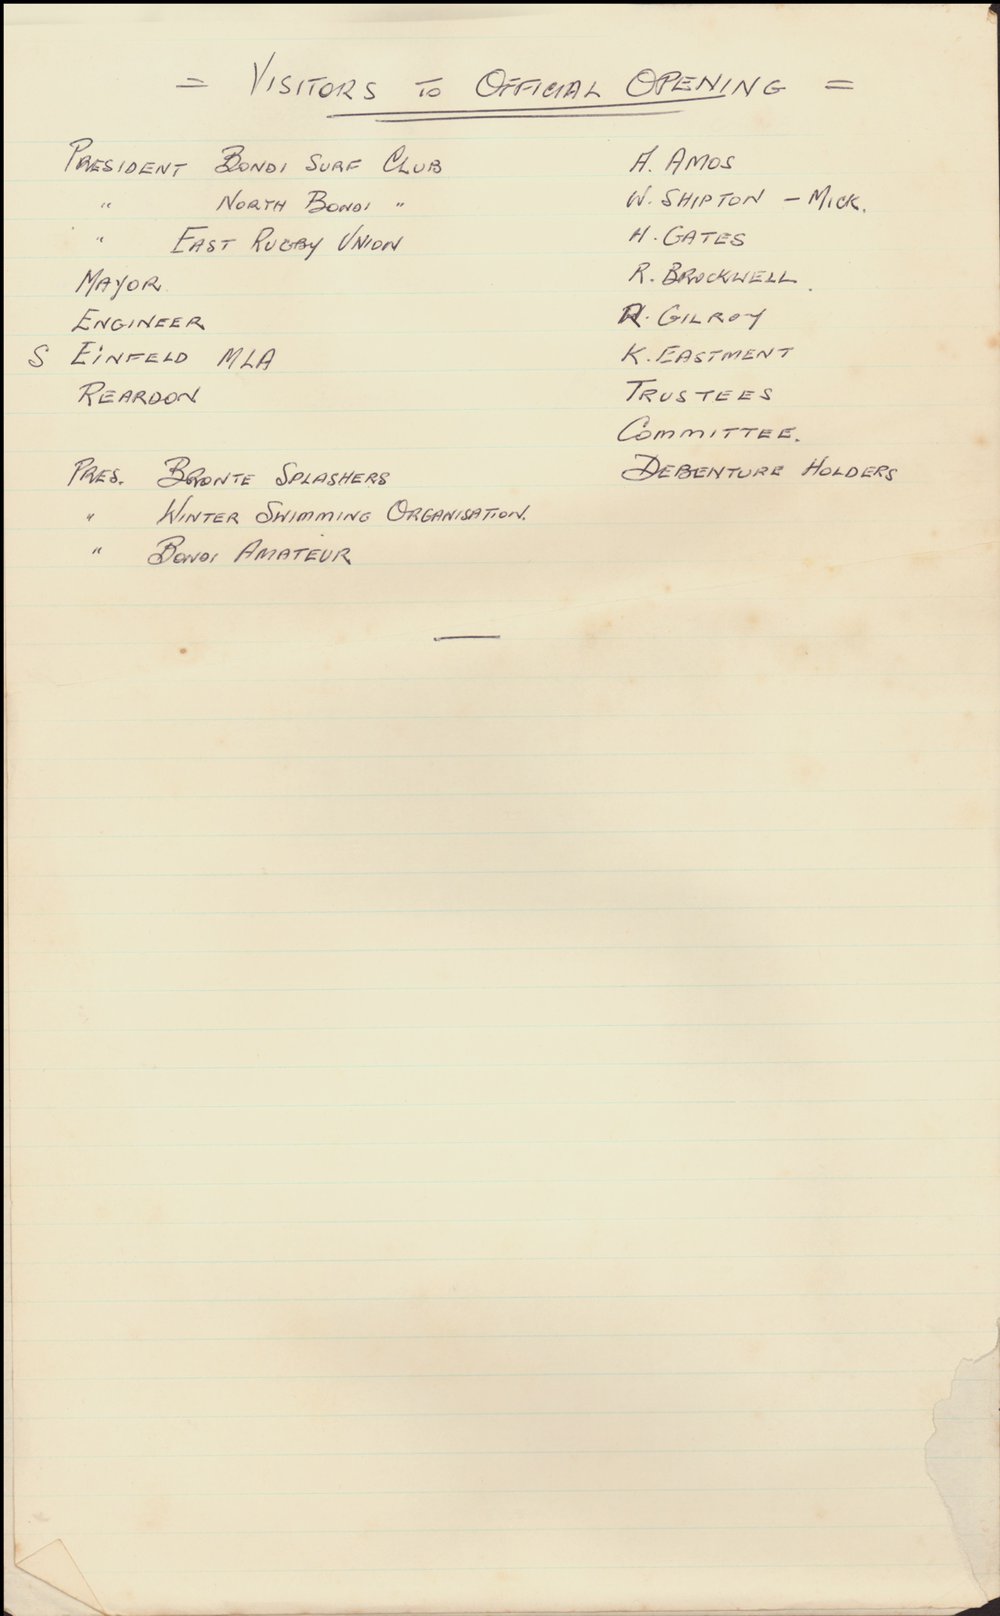 = VISITORS TO OFFICIAL OPENING =
PRESIDENT BONDI SURF CLUB
" NORTH BONDI "
" EAST RUGBY UNION
MAYOR
ENGINEER
S EINFELD MLA
REARDON
PRES. BRONTE SPLASHERS
" WINTER SWIMMING ORGANISATION.
" BONDI AMATEUR
A. AMOS
W. SHIPTON - MICK.
H. GATES
R. BROCKWELL.
R. GILROY
K. EASTMENT
TRUSTEES
COMMITTEE.
DEBENTURE HOLDERS